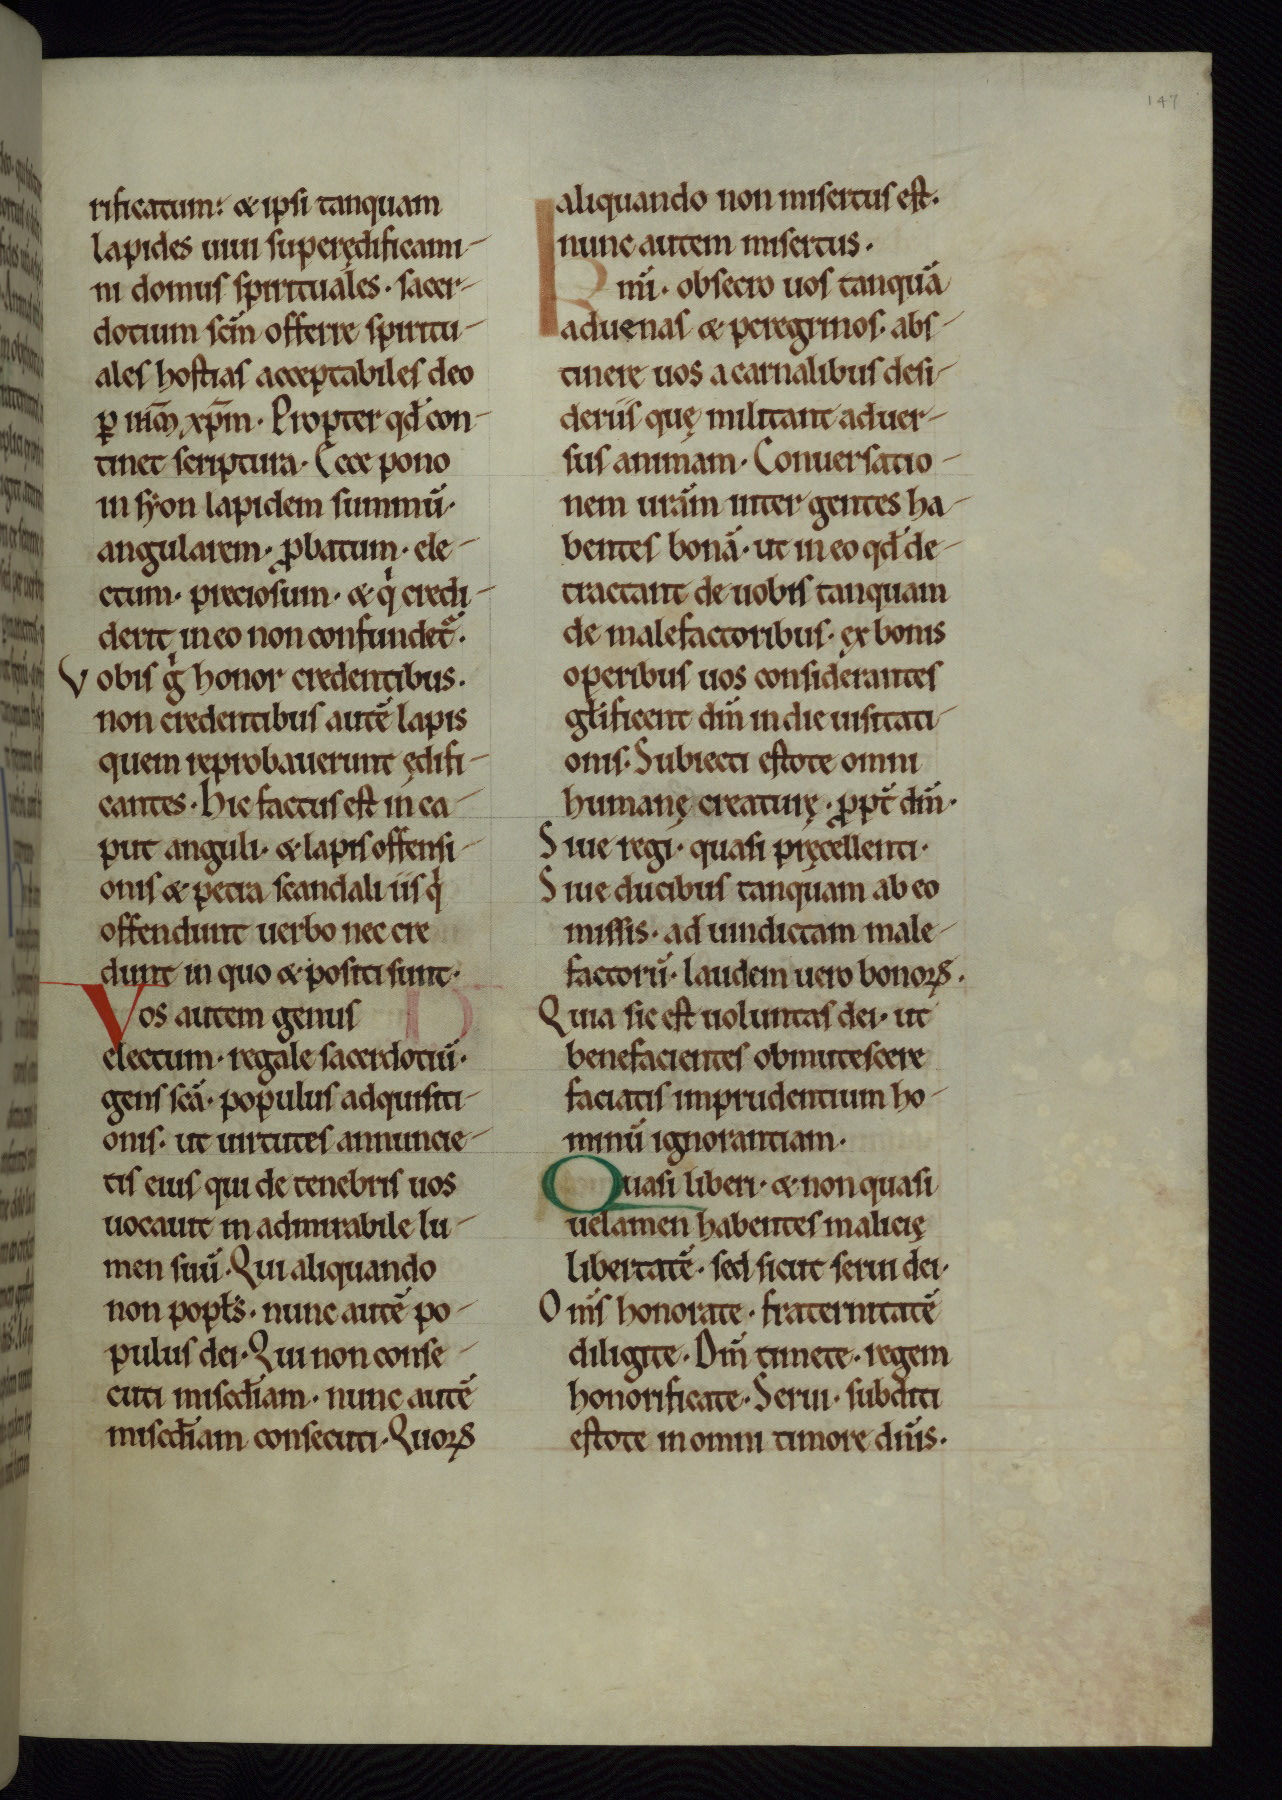 147
rificatum: & ipsi tanquam
lapides uiui superędificami-
ni domus spirituales · sacer-
dotium scm̄ offerre spiritu-
ales hostias acceptabiles deo
ꝑ ihm̄ xp̄m · Propter qđ con-
tinet scriptura · Ecce pono
in syon lapidem summū ·
angularem · ꝓbatum · ele-
ctum · preciosum · & qͥ credi-
derit in eo non confundet᷑ ·
Vobis gͦ honor credentibus ·
non credentibus autē lapis
quem reprobauerunt ędifi-
cantes · hic factus est in ca-
put anguli · & lapis offensi-
onis & petra scandali iis qͥ
offendunt uerbo nec cre
dunt in quo & positi sunt ·
Vos autem genus
electum · regale sacerdotiū ·
gens scā · populus adquisiti-
onis · ut uirtutes annuncie-
tis eius qui de tenebris uos
uocauit in admirabile lu-
men suū · Qui aliquando
non popłs · nunc autē po-
pulus dei · Qui non conse-
cuti misc̄diam · nunc autē
misc̄diam consecuti · Quoꝝ
aliquando non misertus est ·
nunc autem misertus ·
Kmī · obsecro uos tanquā
aduenas & peregrinos · abs-
tinere uos a carnalibus desi-
deriis quę militant aduer-
sus animam · Conuersatio-
nem urām inter gentes ha-
bentes bonā · ut in eo qđ de-
tractant de uobis tanquam
de malefactoribus · ex bonis
operibus uos considerantes
głificent dm̄ in die uisitati-
onis · Subiecti estote omni
humanę creaturę · ꝓpt̄ dm̄ ·
Siue regi · quasi pręcellenti ·
Siue ducibus tanquam ab eo
missis · ad uindictam male-
factorū · laudem uero bonoꝝ ·
Quia sic est uoluntas dei · ut
benefacientes obmutescere
faciatis imprudentium ho-
minū ignorantiam ·
Quasi liberi · & non quasi
uelamen habentes malicię
libertatē · sed sicut serui dei ·
Om̄s honorate · fraternitatē
diligite · Dm̄ timete · regem
honorificate · Serui · subditi
estote in omni timore dn̄is ·